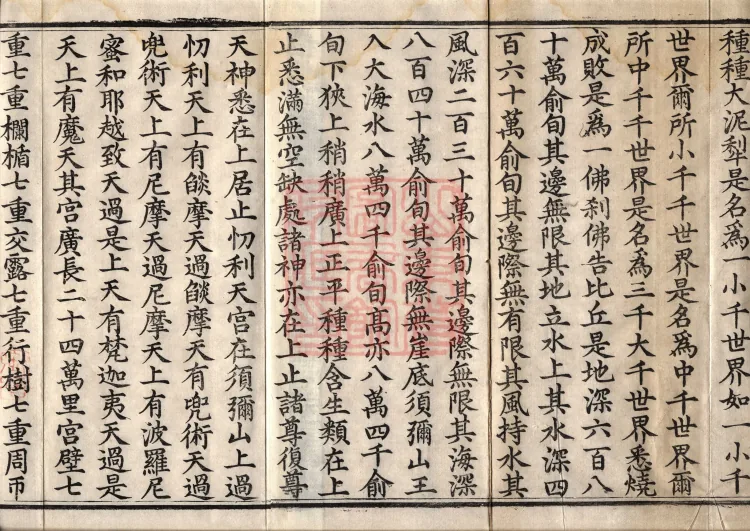 種種大泥犁是名爲一小千世界如一小千
世界爾所小千千世界是名爲中千世界爾
所中千千世界是名爲三千大千世界悉燒
成敗是爲一佛刹佛告比丘是地深六百八
十萬俞旬其邊無限其地立水上其水深四
百六十萬俞旬其邊際無有限其風持水其
風深二百三十萬俞旬其邊際無限其海深
八百四十萬俞旬其邊際無崖底須彌山王
入大海水八萬四千俞旬高亦八萬四千俞
旬下狹上稍稍廣上正平種種含生類在上
止悉滿無空缺處諸神亦在上止諸尊復尊
天神悉在上居止忉利天宮在須彌山上過
忉利天上有燄摩天過燄摩天有兜術天過
兜術天上有尼摩天過尼摩天上有波羅尼
蜜和耶越致天過是上天有梵迦夷天過是
天上有魔天其宮廣長二十四萬里宮壁七
重七重欄楯七重交露七重行樹七重周帀